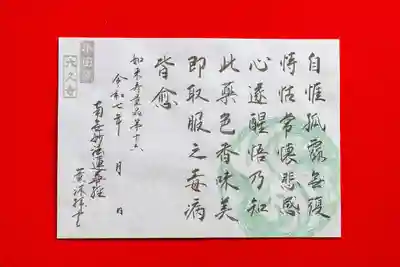 自惟孤露無復
恃怙常懐悲感
心遂醒悟乃知
此薬色香味美
即取服之毒病
皆愈
如来寿量品第十六
令和七年　月　日
南無妙法蓮華経